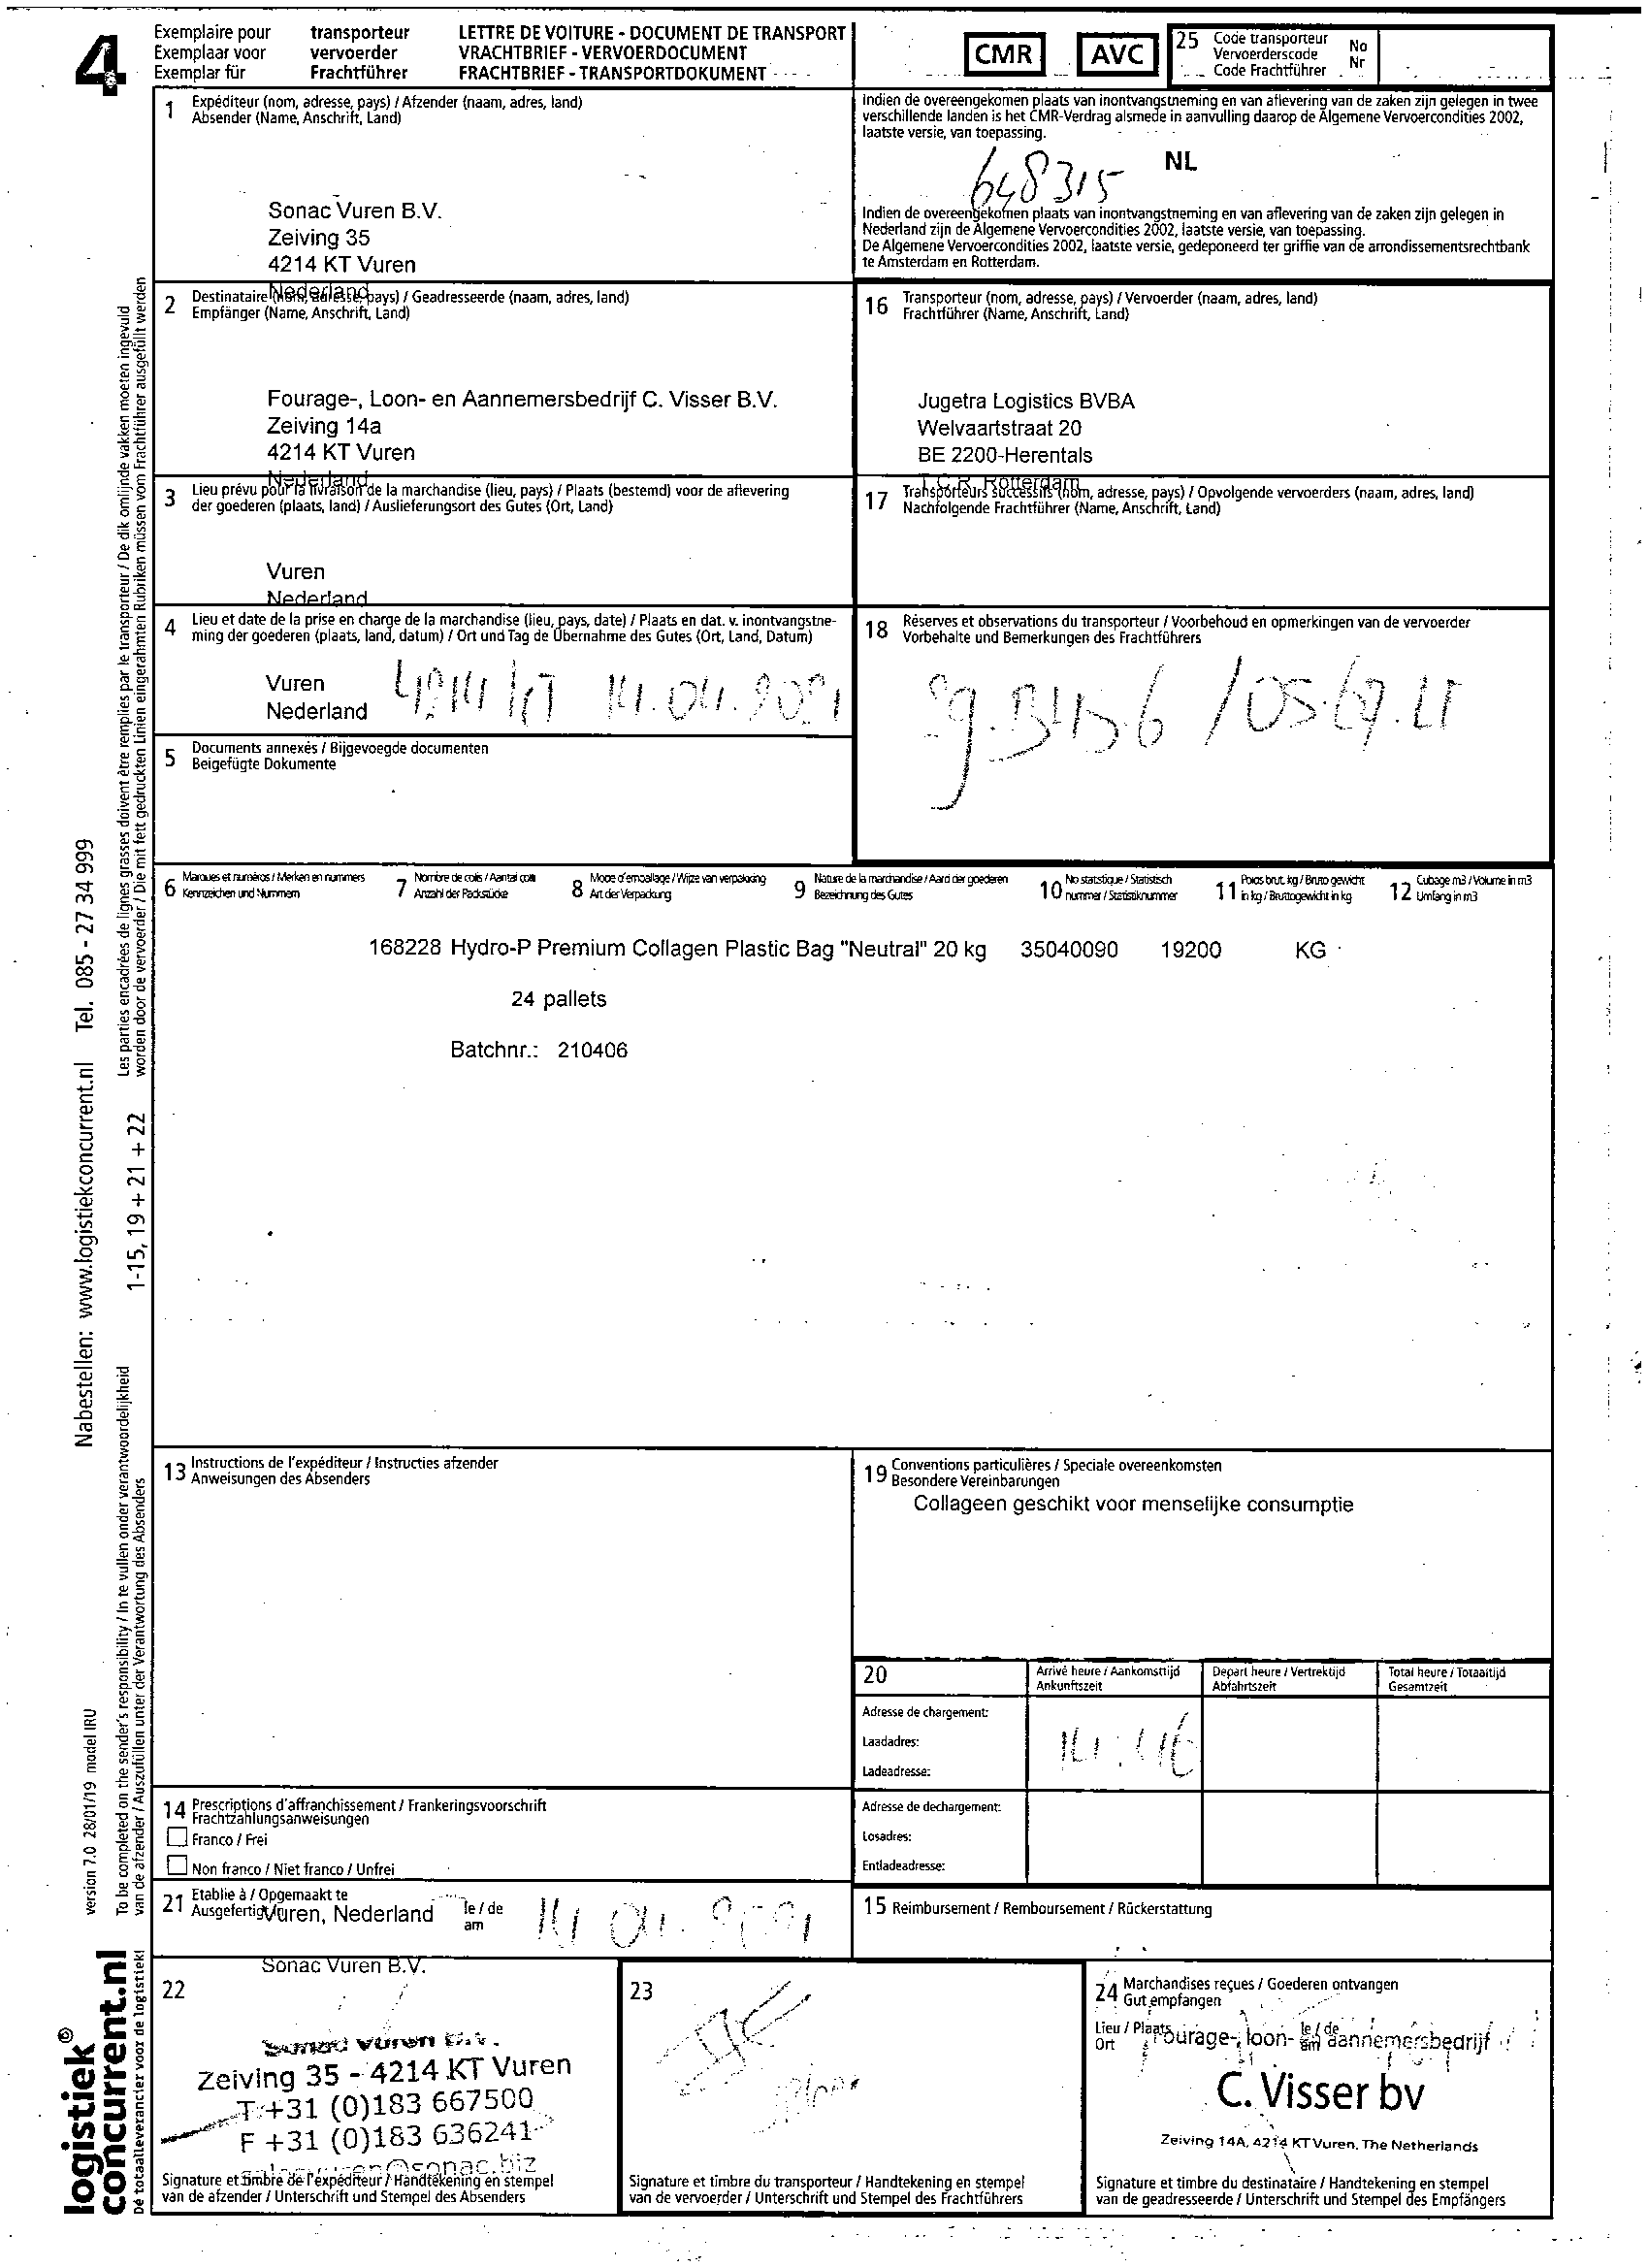 4
Exemplaire pour transporteur
Exemplaar voor vervoerder
Exemplar für Frachtführer
LETTRE DE VOITURE - DOCUMENT DE TRANSPORT
VRACHTBRIEF - VERVOERDOCUMENT
FRACHTBRIEF - TRANSPORTDOKUMENT
CMR
AVC
25 Code transporteur
Vervoerderscode
Code Frachtführer
No
Nr
1 Expéditeur (nom, adresse, pays) / Afzender (naam, adres, land)
Absender (Name, Anschrift, Land)
Sonac Vuren B.V.
Zeiving 35
4214 KT Vuren
Nederland
Indien de overeengekomen plaats van inontvangstneming en van aflevering van de zaken zijn gelegen in twee
verschillende landen is het CMR-Verdrag alsmede in aanvulling daarop de Algemene Vervoercondities 2002,
laatste versie, van toepassing.
648315
NL
Indien de overeengekomen plaats van inontvangstneming en van aflevering van de zaken zijn gelegen in
Nederland zijn de Algemene Vervoercondities 2002, laatste versie, van toepassing.
De Algemene Vervoercondities 2002, laatste versie, gedeponeerd ter griffie van de arrondissementsrechtbank
te Amsterdam en Rotterdam.
2 Destinataire (nom, adresse, pays) / Geadresseerde (naam, adres, land)
Empfänger (Name, Anschrift, Land)
Fourage-, Loon- en Aannemersbedrijf C. Visser B.V.
Zeiving 14a
4214 KT Vuren
Nederland
16 Transporteur (nom, adresse, pays) / Vervoerder (naam, adres, land)
Frachtführer (Name, Anschrift, Land)
Jugetra Logistics BVBA
Welvaartstraat 20
BE 2200-Herentals
T.C.R. Rotterdam
3 Lieu prévu pour la livraison de la marchandise (lieu, pays) / Plaats (bestemd) voor de aflevering
der goederen (plaats, land) / Auslieferungsort des Gutes (Ort, Land)
Vuren
Nederland
17 Transporteurs successifs (nom, adresse, pays) / Opvolgende vervoerders (naam, adres, land)
Nachfolgende Frachtführer (Name, Anschrift, Land)
4 Lieu et date de la prise en charge de la marchandise (lieu, pays, date) / Plaats en dat. v. inontvangstne-
ming der goederen (plaats, land, datum) / Ort und Tag de Übernahme des Gutes (Ort, Land, Datum)
Vuren
Nederland
4214 KT 14.04.2021
18 Réserves et observations du transporteur / Voorbehoud en opmerkingen van de vervoerder
Vorbehalte und Bemerkungen des Frachtführers
5 Documents annexés / Bijgevoegde documenten
Beigefügte Dokumente
6 Marques et numéros / Merken en nummers
Kennzeichen und Nummern
7 Nombre de colis / Aantal colli
Anzahl der Packstücke
8 Mode d'emballage / Wijze van verpakking
Art der Verpackung
9 Nature de la marchandise / Aard der goederen
Bezeichnung des Gutes
10 No statstique / Statistisch
nummer / Statistiknummer
11 Poids brut. kg / Bruto gewicht
in kg / Bruttogewicht in kg
12 Cubage m3 / Volume in m3
Umfang in m3
168228 Hydro-P Premium Collagen Plastic Bag "Neutral" 20 kg 35040090 19200 KG
24 pallets
Batchnr.: 210406
13 Instructions de l'expéditeur / Instructies afzender
Anweisungen des Absenders
19 Conventions particulières / Speciale overeenkomsten
Besondere Vereinbarungen
Collageen geschikt voor menselijke consumptie
20
Arrivé heure / Aankomsttijd
Ankunftszeit
Depart heure / Vertrektijd
Abfahrtszeit
Total heure / Totaaltijd
Gesamtzeit
Adresse de chargement:
Laadadres:
Ladeadresse:
14:46
Adresse de dechargement:
Losadres:
Entladeadresse:
14 Prescriptions d'affranchissement / Frankeringsvoorschrift
Frachtzahlungsanweisungen
Franco / Frei
Non franco / Niet franco / Unfrei
21 Etablie à / Opgemaakt te
Ausgefertigt
Vuren, Nederland
le / de
am
14 04. 2021
15 Reimbursement / Remboursement / Rückerstattung
22
Sonac Vuren B.V.
Sonac Vuren B.V.
Zeiving 35 - 4214 KT Vuren
T +31 (0)183 667500
F +31 (0)183 636241
Signature et timbre de l'expéditeur / Handtekening en stempel
van de afzender / Unterschrift und Stempel des Absenders
23
Signature et timbre du transporteur / Handtekening en stempel
van de vervoerder / Unterschrift und Stempel des Frachtführers
24 Marchandises reçues / Goederen ontvangen
Gut empfangen
Lieu / Plaats
Ort
le / de
am
Fourage-, loon- en aannemersbedrijf
C. Visser bv
Zeiving 14A, 4214 KT Vuren, The Netherlands
Signature et timbre du destinataire / Handtekening en stempel
van de geadresseerde / Unterschrift und Stempel des Empfängers
Les parties encadrées de lignes grasses doivent être remplies par le transporteur / De dik omlijnde vakken moeten ingevuld
worden door de vervoerder / Die mit fett gedruckten Linien eingerahmten Rubriken müssen vom Frachtführer ausgefüllt werden
1-15, 19 + 21 + 22
To be completed on the sender's responsibility / In te vullen onder verantwoordelijkheid
van de afzender / Auszufüllen unter der Verantwortung des Absenders
Nabestellen: www.logistiekconcurrent.nl Tel. 085 - 27 34 999
version 7.0 28/01/19 model IRU
logistiek©
concurrent.nl
Dé totaalleverancier voor de logistiek!